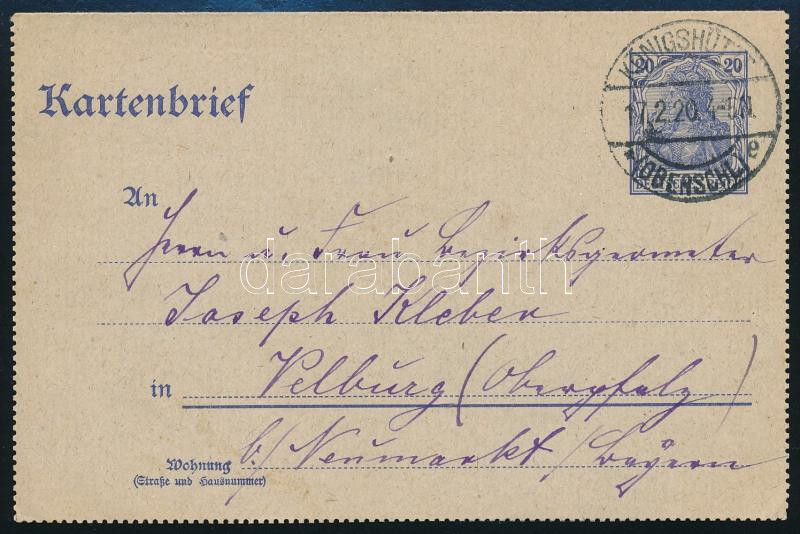 Kartenbrief
20 20
KÖNIGSHÜTTE
17.2.20. 4-5N.
* (OBERSCHL.) e
An
Herrn u. Frau Bezirksgeometer
darabanth
Joseph Kleber
in Velburg (Oberpfalz)
Wohnung b/ Neumarkt /Bayern
(Straße und Hausnummer)